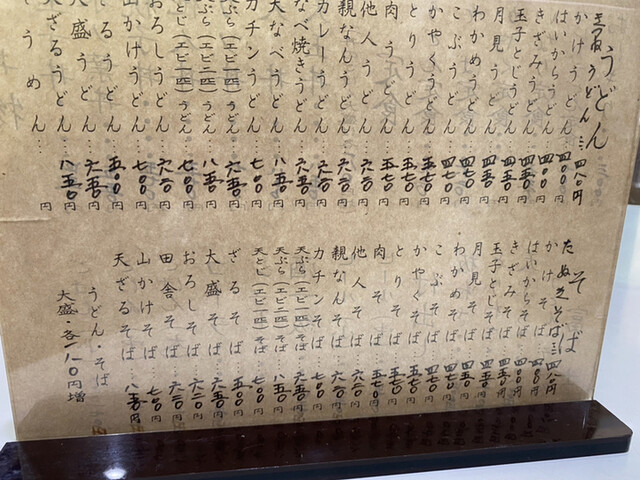 うどん
うどん…四八〇円
かけうどん…四〇〇円
はいからうどん…四〇〇円
きざみうどん…四五〇円
玉子とじうどん…四五〇円
月見うどん…四五〇円
わかめうどん…四七〇円
こぶうどん…四七〇円
かやくうどん…五七〇円
とりうどん…五五〇円
肉うどん…五七〇円
他人うどん…六二〇円
親なんうどん…六二〇円
カレーうどん…六二〇円
なべ焼きうどん…六五〇円
天なべうどん…八五〇円
カチンうどん…七〇〇円
ぷら(エビ一匹)うどん…六五〇円
ぷら(エビ二匹)うどん…八五〇円
とじ(エビ一匹)うどん…七〇〇円
おろしうどん…六二〇円
山かけうどん…七〇〇円
ざるうどん…五〇〇円
大盛うどん…六五〇円
天ざるうどん…八五〇円
そうめん 円
そば
たぬきそば…四八〇円
かけそば…四〇〇円
はいからそば…四〇〇円
きざみそば…四五〇円
玉子とじそば…四五〇円
月見そば…四五〇円
わかめそば…四七〇円
こぶそば…四七〇円
かやくそば…五七〇円
とりそば…五五〇円
肉そば…五七〇円
他人そば…六二〇円
親なんそば…六二〇円
カチンそば…七〇〇円
天ぷら(エビ一匹)そば…六五〇円
天ぷら(エビ二匹)そば…八五〇円
天とじ(エビ一匹)そば…七〇〇円
ざるそば…五〇〇円
大盛そば…六五〇円
おろしそば…六二〇円
田舎そば…六二〇円
山かけそば…七〇〇円
天ざるそば…八五〇円
うどん・そば
大盛・各一八〇円増